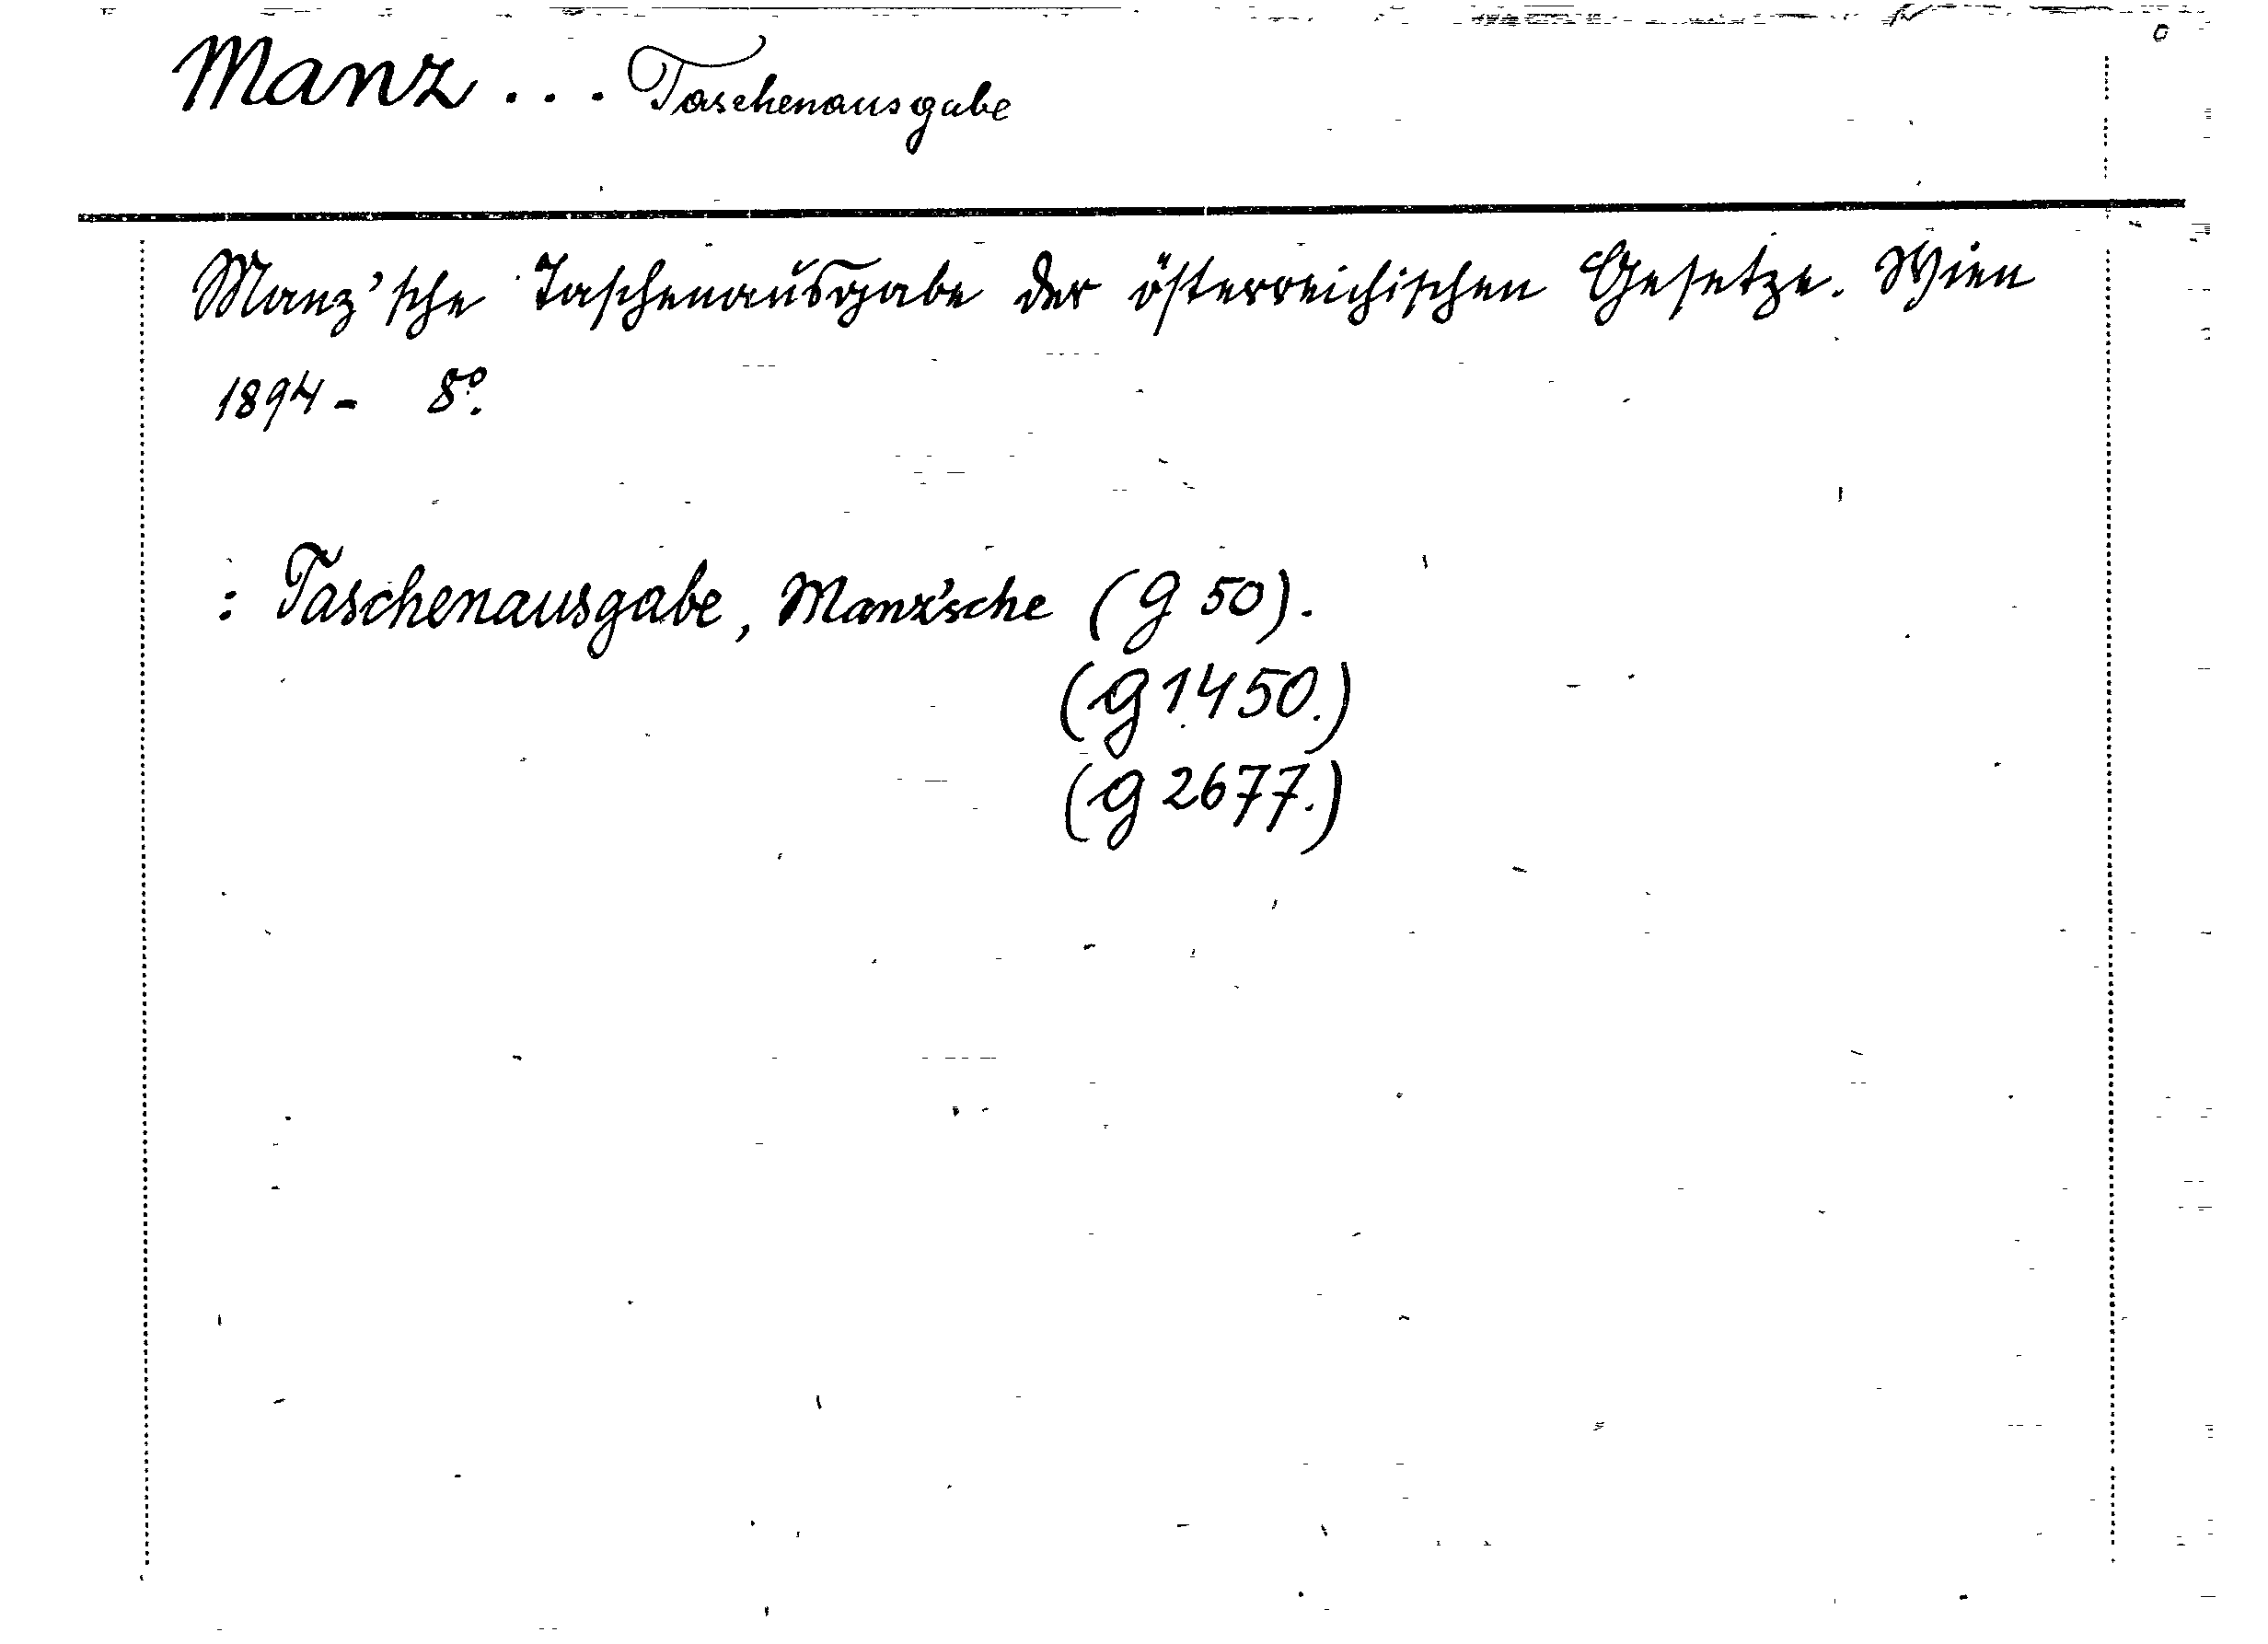 Manz... Taschenausgabe
Manz'sche Taschenausgabe der österreichischen Gesetze. Wien
1894- 8º.
: Taschenausgabe, Manz'sche (G 50).
(G 1450.)
(G 2677.)